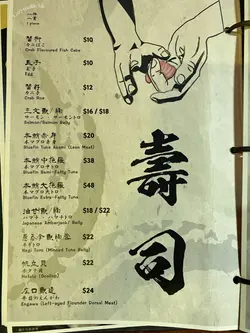 1 piece
蟹柳
カニぼこ
Crab Flavoured Fish Cake
$10
玉子
玉子
Egg
$10
蟹籽
カニ子
Crab Roe
$12
三文魚/腩
サーモン・サーモントロ
Salmon/Salmon Belly
$16 / $18
本鮪赤身
本マグロ赤身
Bluefin Tuna Akami (Lean Meat)
$20
本鮪中拖羅
本マグロ中トロ
Bluefin Semi-Fatty Tuna
$38
本鮪大拖羅
本マグロ大トロ
Bluefin Extra-Fatty Tuna
$48
油甘魚/腩
ハマチ・ハマチトロ
Japanese Amberjack/Belly
$18 / $22
ネギトロ
Negi Toro (Minced Tuna Belly)
$22
帆立貝
ホタテ貝
Hotate (Scallop)
$22
左口魚邊
平目のえんがわ
Engawa (Left-eyed Flounder Dorsal Meat)
$24
壽司